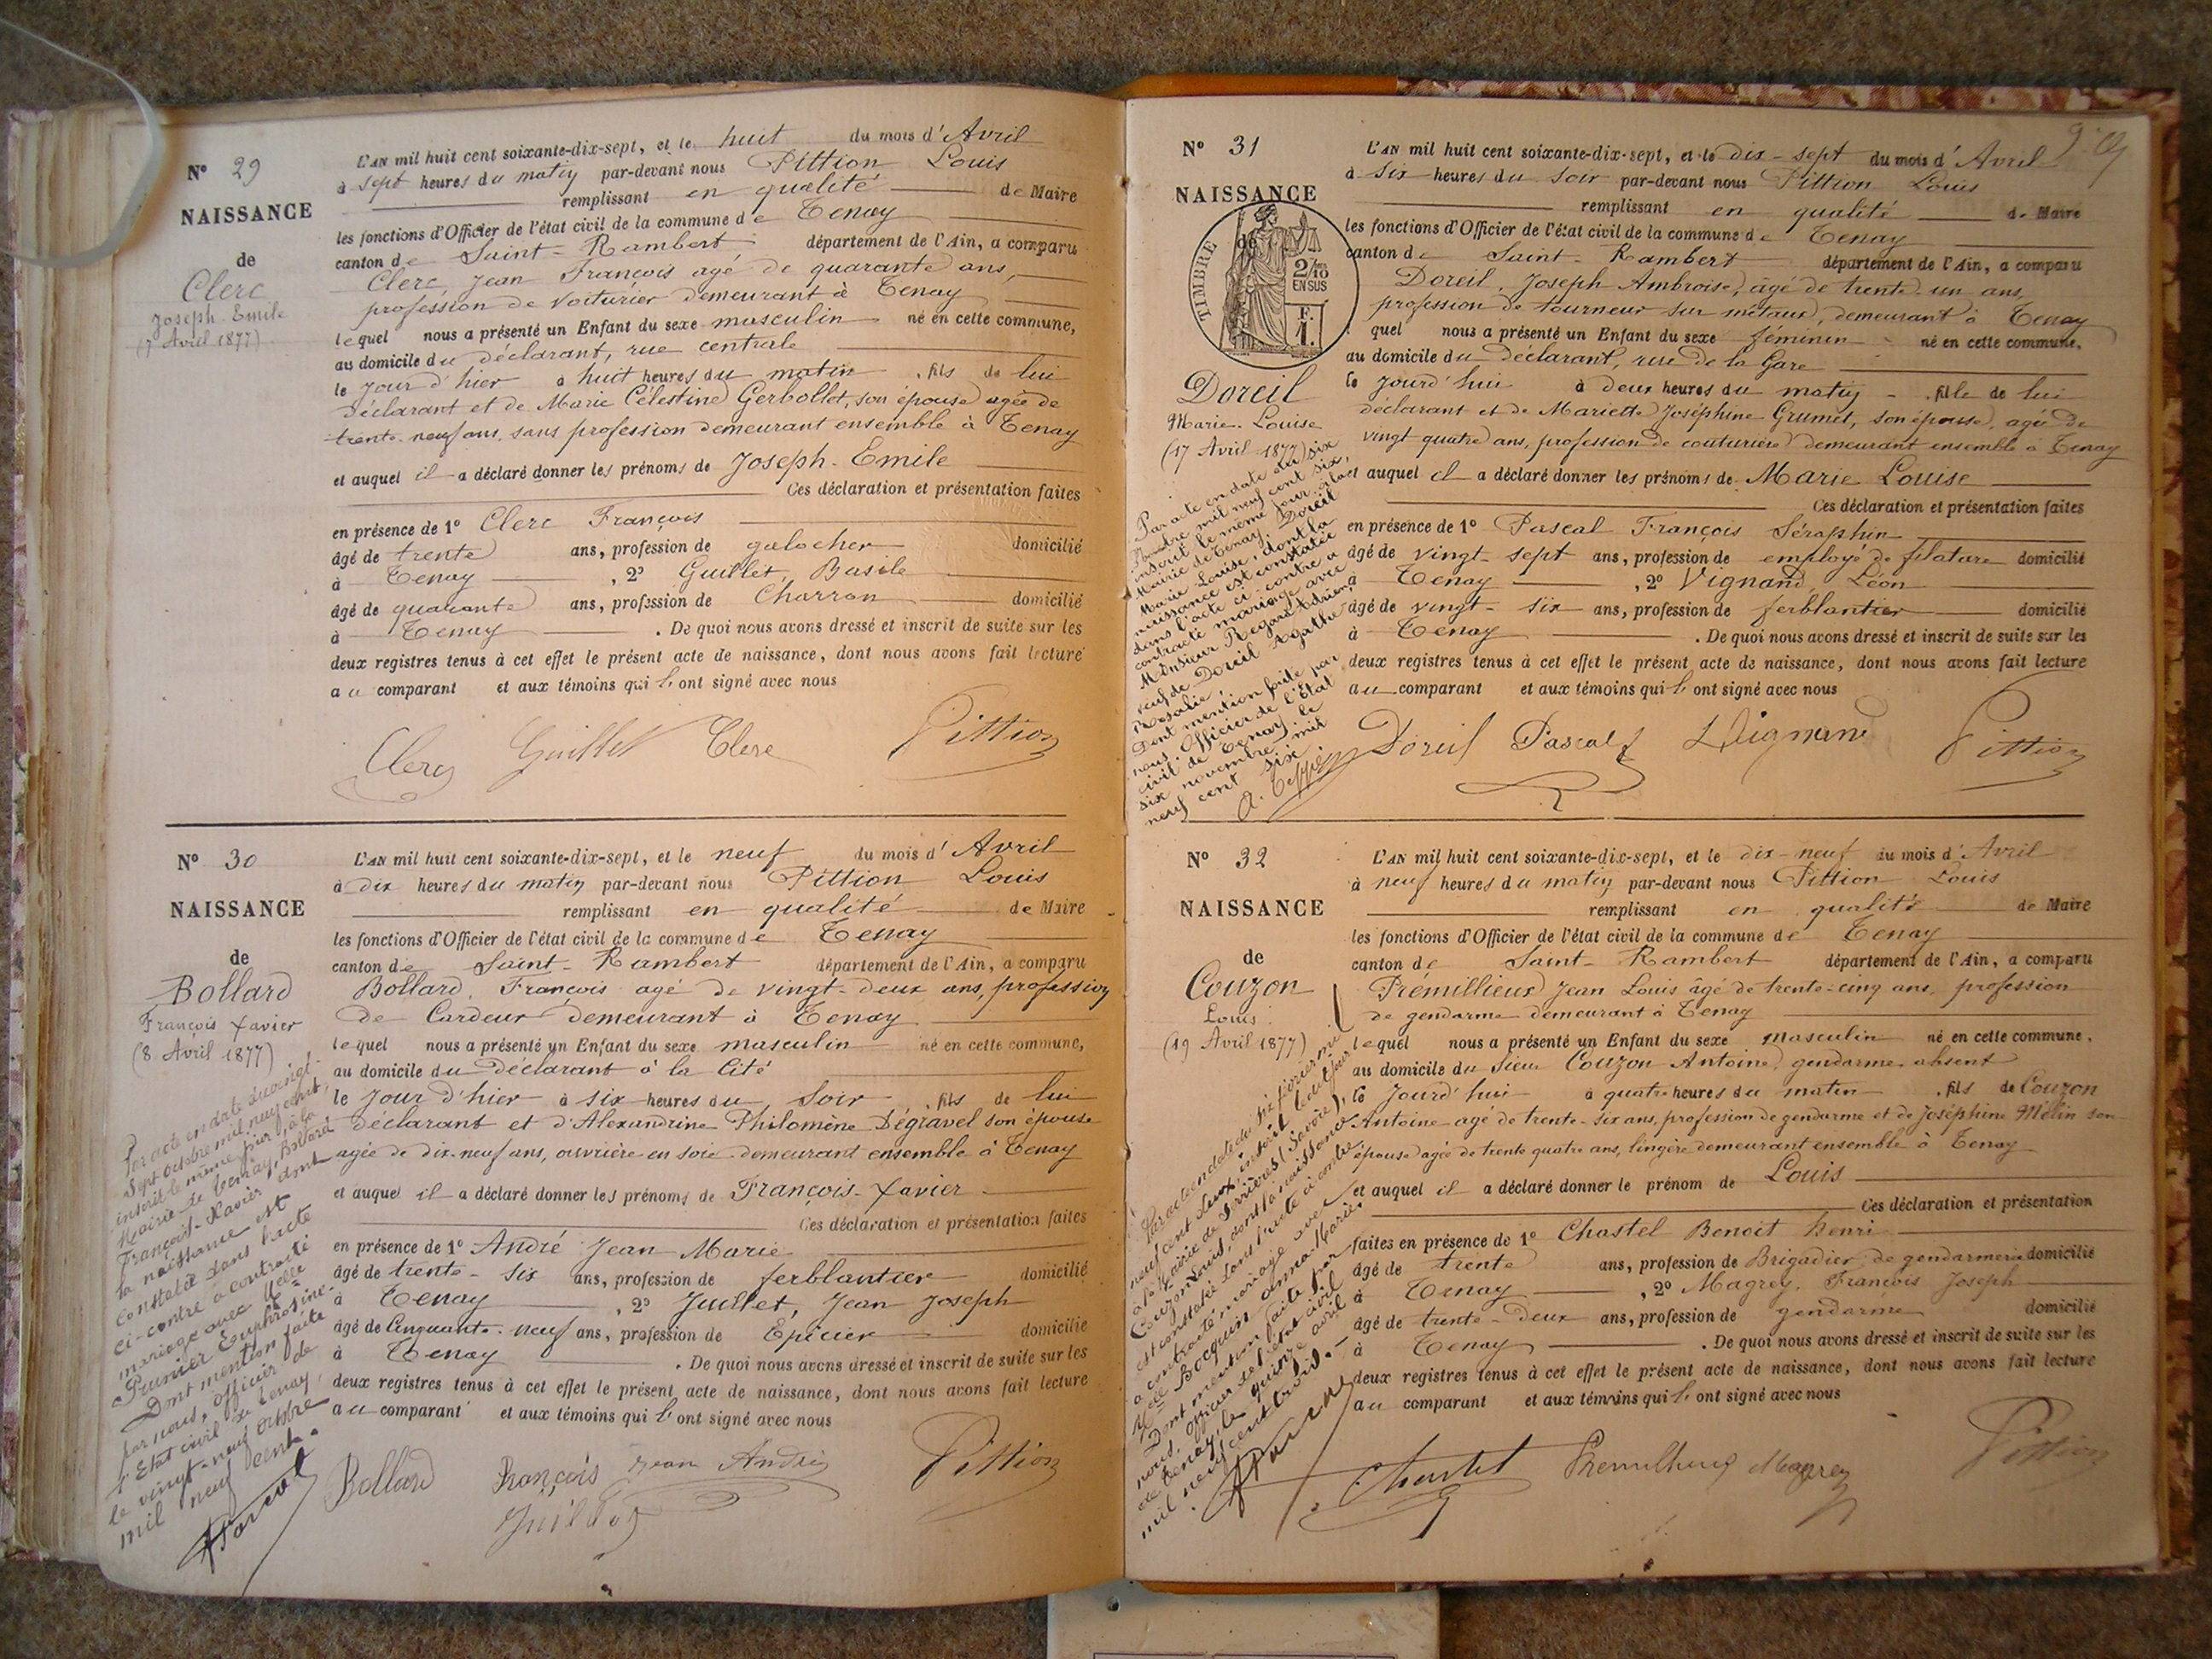 N° 29
NAISSANCE
de
Clerc
Joseph Emile
(7 Avril 1877)
L'AN mil huit cent soixante-dix-sept, et le huit du mois d'Avril
à sept heures du matin par-devant nous Pittion Louis
remplissant en qualité de Maire
les fonctions d'Officier de l'état civil de la commune de Tenay
canton de Saint-Rambert département de l'Ain, a comparu
Clerc, Jean François agé de quarante ans,
profession de voiturier demeurant à Tenay
lequel nous a présenté un Enfant du sexe masculin né en cette commune,
au domicile du déclarant, rue centrale
le jour d'hier à huit heures du matin, fils de lui
déclarant et de Marie Célestine Gerbollet, son épouse agée de
trente-neuf ans, sans profession demeurant ensemble à Tenay
et auquel il a déclaré donner les prénoms de Joseph-Emile
Ces déclaration et présentation faites
en présence de 1° Clerc François
âgé de trente ans, profession de galocher domicilié
à Tenay, 2° Guillet, Basile
âgé de quarante ans, profession de Charron domicilié
à Tenay. De quoi nous avons dressé et inscrit de suite sur les
deux registres tenus à cet effet le présent acte de naissance, dont nous avons fait lecture
au comparant et aux témoins qui l'ont signé avec nous
Clerc Guillet Clerc Pittion
N° 30
NAISSANCE
de
Bollard
François Xavier
(8 Avril 1877)
Par acte en date du vingt-
sept octobre mil neuf cent,
inscrit le même jour à la
Mairie de Tenay, Bollard
François-Xavier dont
la naissance est
constatée dans l'acte
ci-contre a contracté
mariage avec Melle
Prunier Euphrosine.
Dont mention faite
par nous, officier de
l'Etat civil de Tenay,
le vingt-neuf octobre
mil neuf cent.
L'AN mil huit cent soixante-dix-sept, et le neuf du mois d'Avril
à dix heures du matin par-devant nous Pittion Louis
remplissant en qualité de Maire
les fonctions d'Officier de l'état civil de la commune de Tenay
canton de Saint-Rambert département de l'Ain, a comparu
Bollard, François agé de vingt-deux ans, profession
de Cardeur demeurant à Tenay
lequel nous a présenté un Enfant du sexe masculin né en cette commune,
au domicile du déclarant à la Cité
le jour d'hier à six heures du soir, fils de lui
déclarant et d'Alexandrine Philomène Dégravel son épouse
agée de dix-neuf ans, ouvrière en soie demeurant ensemble à Tenay
et auquel il a déclaré donner les prénoms de François-Xavier
Ces déclaration et présentation faites
en présence de 1° André Jean Marie
âgé de trente-six ans, profession de ferblantier domicilié
à Tenay, 2° Juillet, Jean Joseph
âgé de Cinquante-neuf ans, profession de Epicier domicilié
à Tenay. De quoi nous avons dressé et inscrit de suite sur les
deux registres tenus à cet effet le présent acte de naissance, dont nous avons fait lecture
au comparant et aux témoins qui l'ont signé avec nous
Bollard François Jean André Pittion
N° 31
NAISSANCE
de
TIMBRE
2/10 EN SUS
F. 1.
Doreil
Marie-Louise
(17 Avril 1877)
Par acte en date du six
Novembre mil neuf cent six,
inscrit le même jour à la
Mairie de Tenay, Doreil
Marie Louise, dont la
naissance est constatée
dans l'acte ci-contre a
contracté mariage avec
Monsieur Regard Adrien,
veuf de Doreil Agathe
Rosalie.
Dont mention faite par
nous, Officier de l'Etat
civil de Tenay, le
six novembre mil
neuf cent six
L'AN mil huit cent soixante-dix-sept, et le dix-sept du mois d'Avril
à six heures du soir par-devant nous Pittion Louis
remplissant en qualité de Maire
les fonctions d'Officier de l'état civil de la commune de Tenay
canton de Saint-Rambert département de l'Ain, a comparu
Doreil, Joseph Ambroise, âgé de trente-un ans,
profession de tourneur sur métaux, demeurant à Tenay
quel nous a présenté un Enfant du sexe féminin né en cette commune,
au domicile du déclarant, rue de la Gare
le jourd'hui à deux heures du matin, fille de lui
déclarant et de Mariette Joséphine Grumet, son épouse, agée de
vingt quatre ans, profession de couturière demeurant ensemble à Tenay
et auquel il a déclaré donner les prénoms de Marie Louise
Ces déclaration et présentation faites
en présence de 1° Pascal François Séraphin
âgé de vingt-sept ans, profession de employé de filature domicilié
à Tenay, 2° Vignand, Léon
âgé de vingt-six ans, profession de ferblantier domicilié
à Tenay. De quoi nous avons dressé et inscrit de suite sur les
deux registres tenus à cet effet le présent acte de naissance, dont nous avons fait lecture
au comparant et aux témoins qui l'ont signé avec nous
Doreil Pascal L Vignand Pittion
N° 32
NAISSANCE
de
Couzon
Louis
(19 Avril 1877)
Par acte en date du dix février mil
neuf cent deux, inscrit le dit jour
à la Mairie de Serrières (Savoie),
Couzon Louis, dont la naissance
est constatée dans l'acte ci-contre
a contracté mariage avec
Melle Bocquin Anna-Marie.
Dont mention faite par
nous, officier de l'état civil
de Tenay, le quinze avril
mil neuf cent trois.
L'AN mil huit cent soixante-dix-sept, et le dix-neuf du mois d'Avril
à neuf heures du matin par-devant nous Pittion Louis
remplissant en qualité de Maire
les fonctions d'Officier de l'état civil de la commune de Tenay
canton de Saint-Rambert département de l'Ain, a comparu
Prémillieux Jean Louis âgé de trente-cinq ans, profession
de gendarme demeurant à Tenay
lequel nous a présenté un Enfant du sexe masculin né en cette commune,
au domicile du sieur Couzon Antoine, gendarme, absent
le jourd'hui à quatre heures du matin, fils de Couzon
Antoine agé de trente-six ans, profession de gendarme et de Joséphine Mélin son
épouse agée de trente quatre ans, lingère demeurant ensemble à Tenay
et auquel il a déclaré donner le prénom de Louis
Ces déclaration et présentation
faites en présence de 1° Chastel Benoit Henri
âgé de trente ans, profession de Brigadier de gendarmerie domicilié
à Tenay, 2° Magrey, François Joseph
âgé de trente-deux ans, profession de gendarme domicilié
à Tenay. De quoi nous avons dressé et inscrit de suite sur les
deux registres tenus à cet effet le présent acte de naissance, dont nous avons fait lecture
au comparant et aux témoins qui l'ont signé avec nous
Chastel Premillieux Magrey Pittion